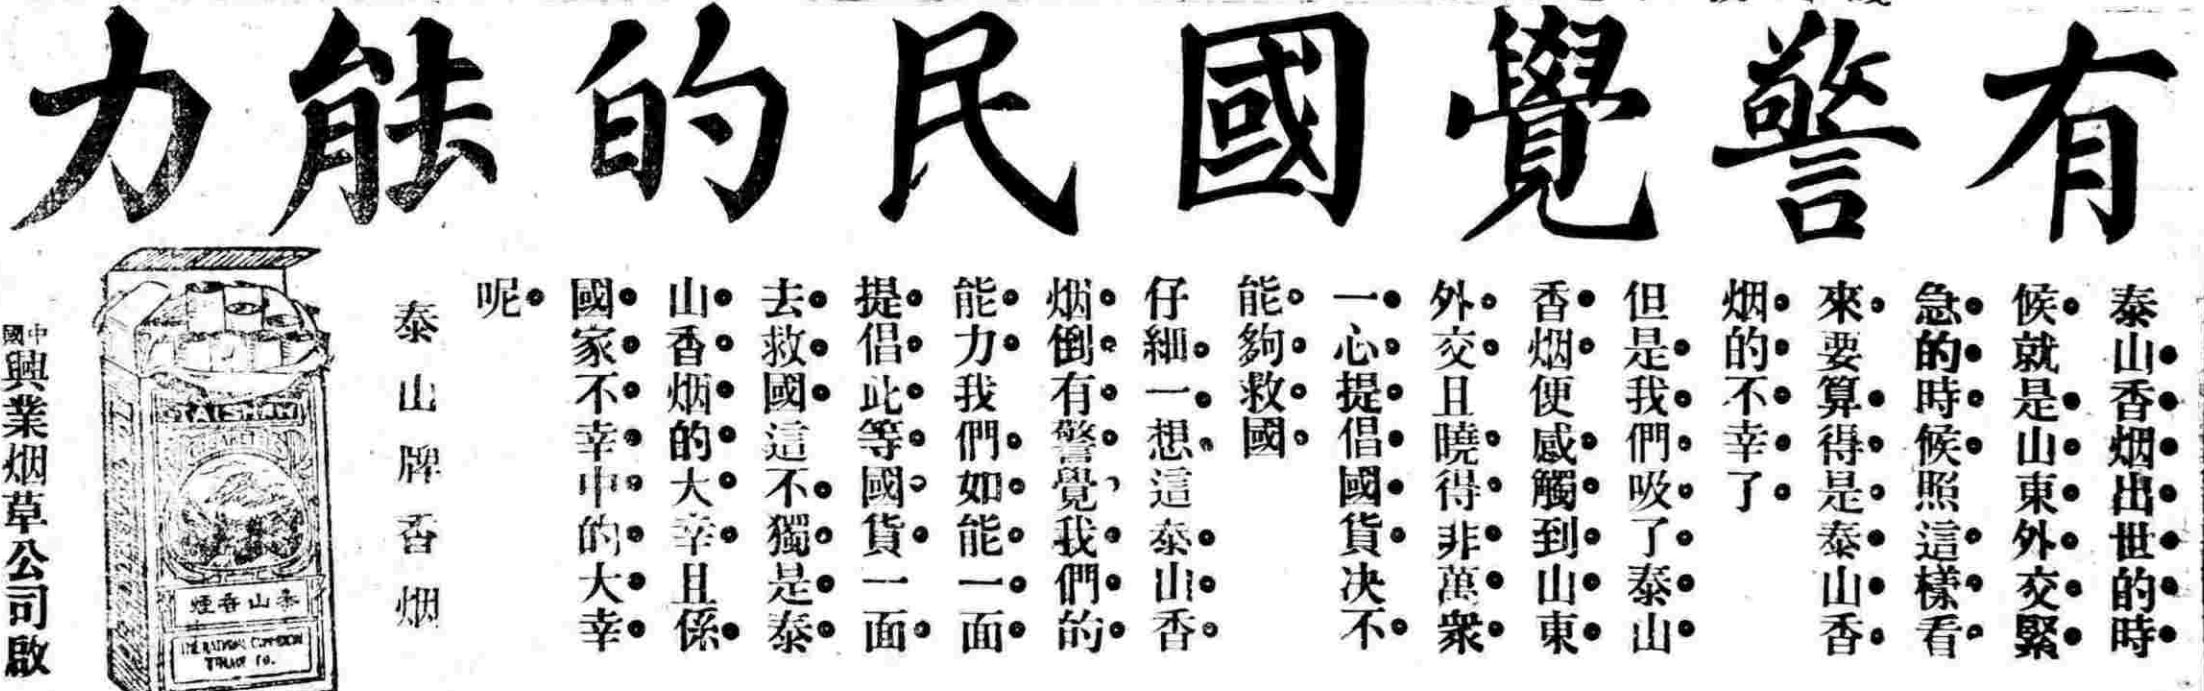 有警覺國民的能力
泰山香烟出世的時
候就是山東外交緊
急的時候照這樣看
來要算得是泰山香
烟的不幸了
但是我們吸了泰山
香烟便感觸到山東
外交且曉得非萬衆
一心提倡國貨决不
能夠救國
仔細一想這泰山香
烟倒有警覺我們的
能力我們如能一面
提倡此等國貨一面
去救國這不獨是泰
山香烟的大幸且係
國家不幸中的大幸
呢
泰山牌香烟
TAISHAN
泰山香煙
中國興業烟草公司啟